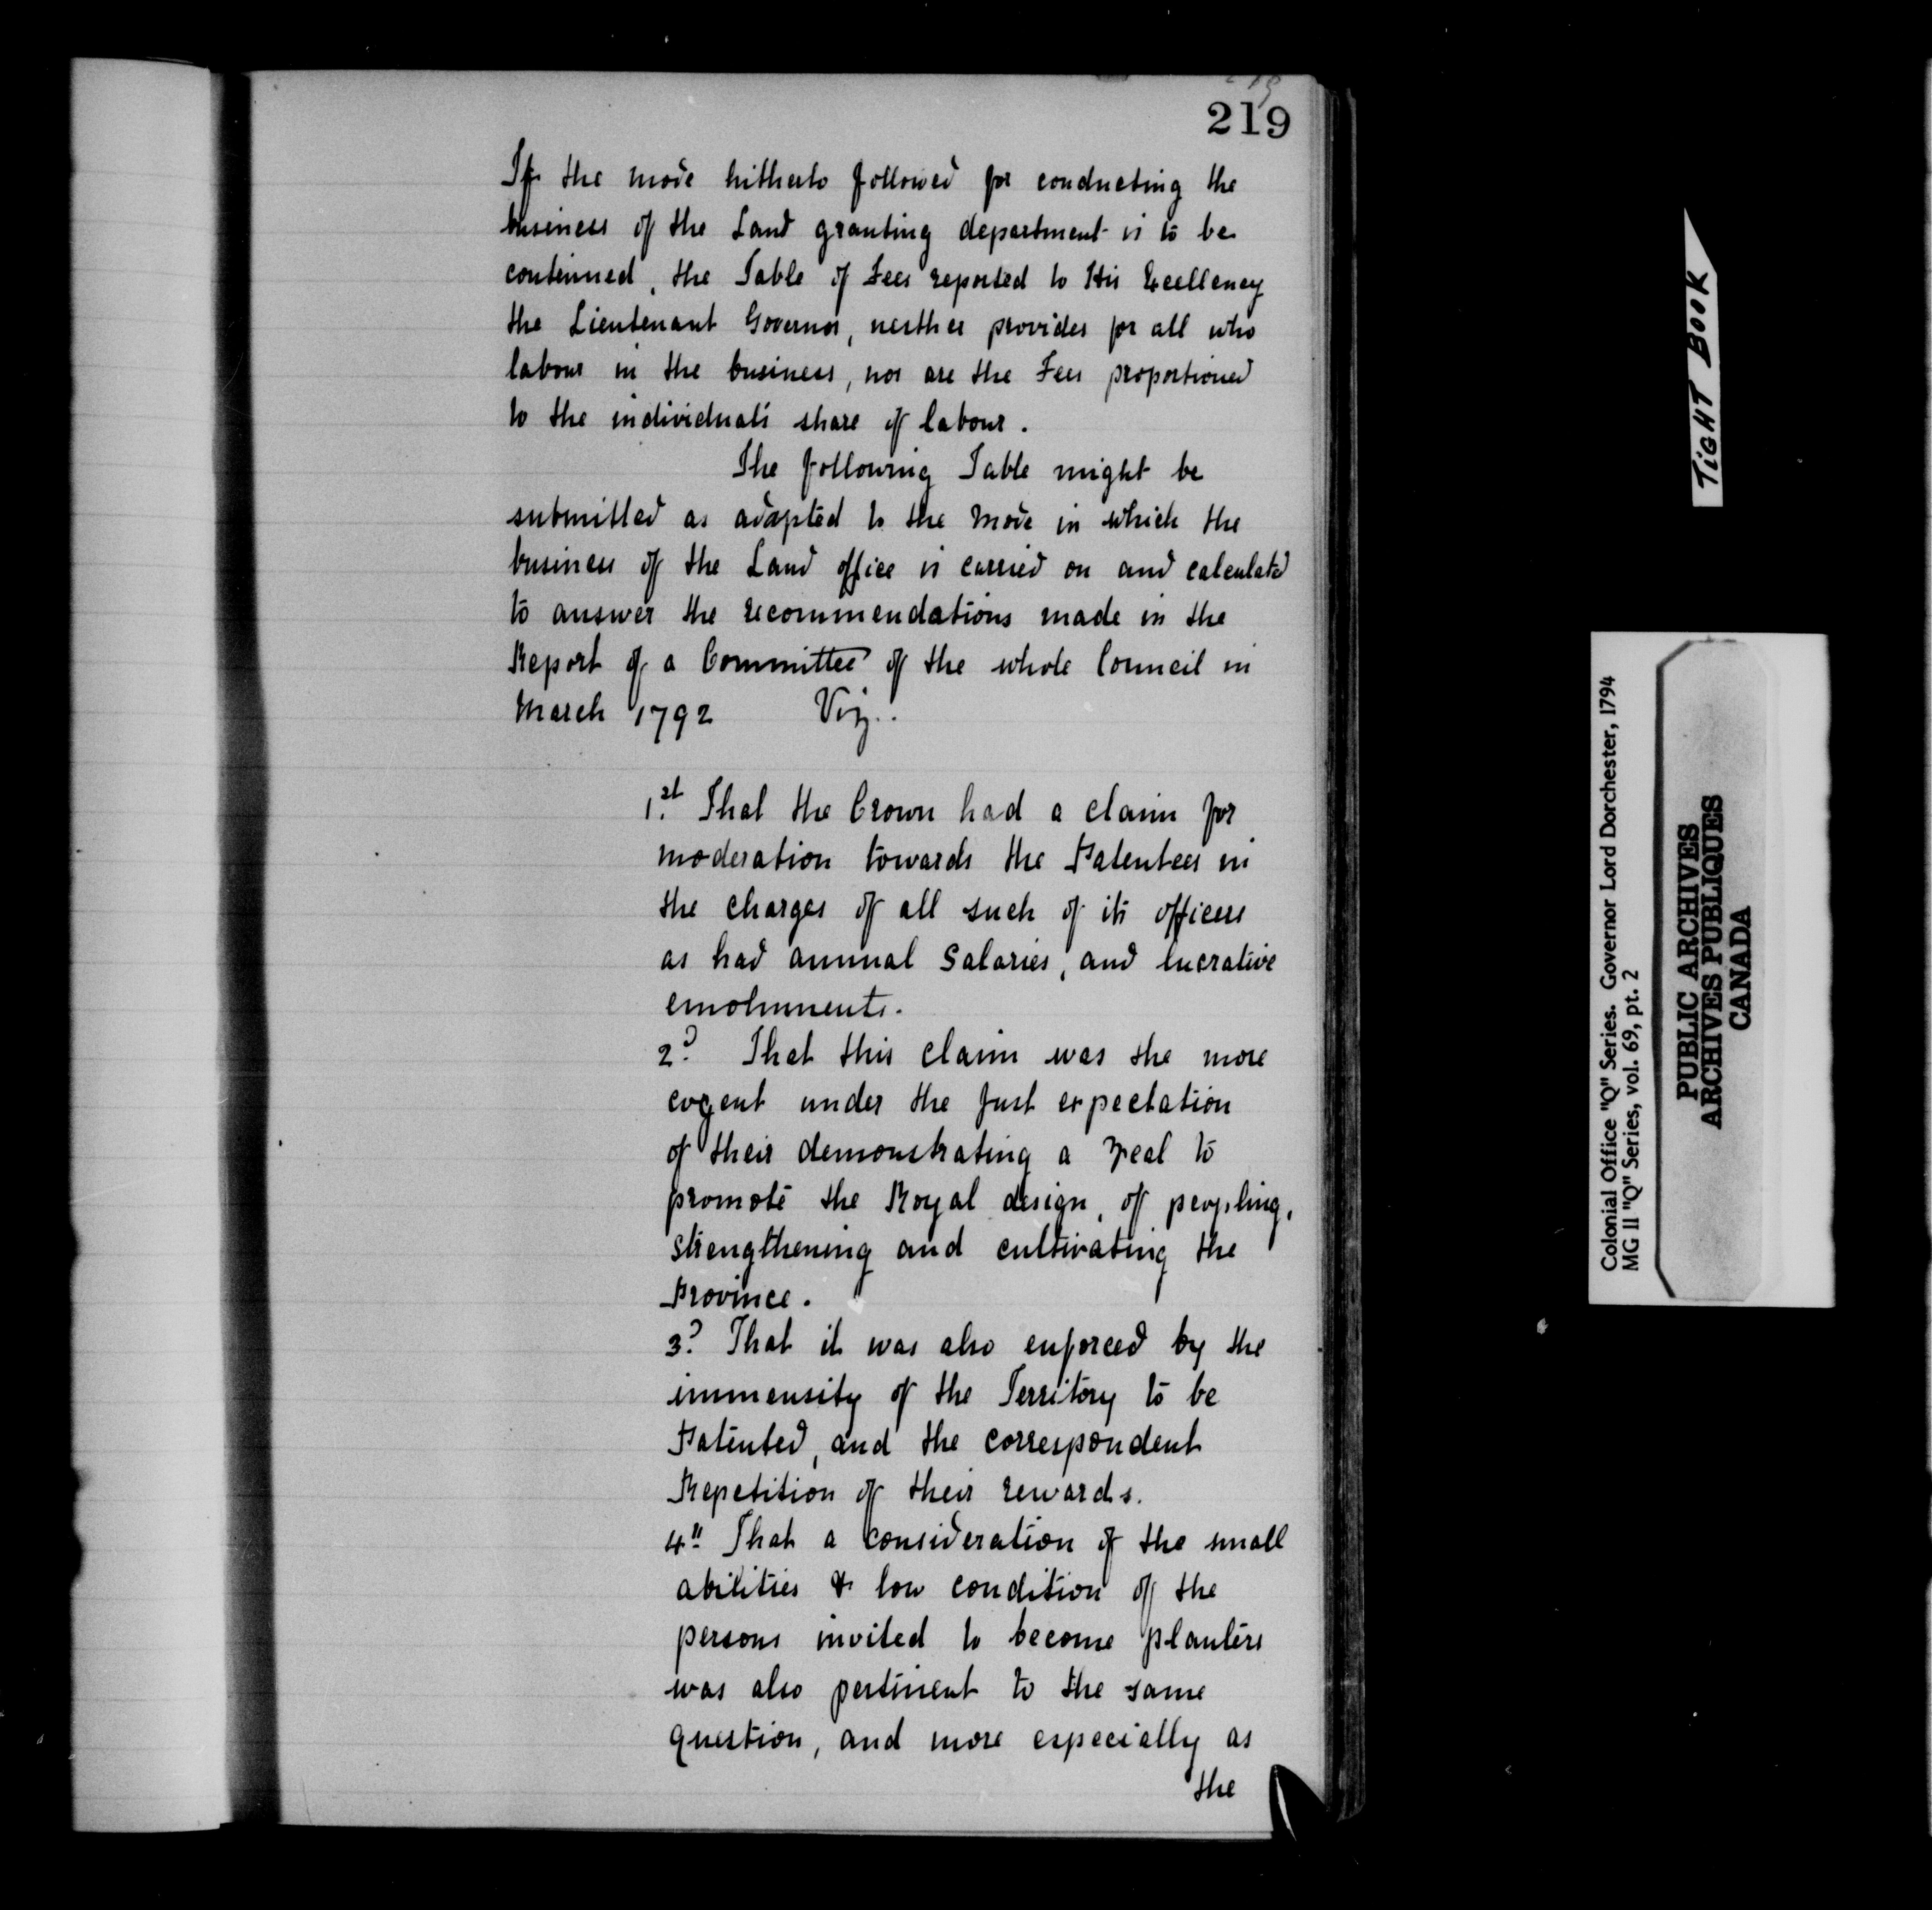 219
If the mode hitherto followed for conducting the
business of the Land granting department is to be
continued, the Table of Fees reported to His Excellency
the Lieutenant Governor, neither provides for all who
labour in the business, nor are the Fees proportioned
to the individual's share of labour.
The following Table might be
submitted as adapted to the mode in which the
business of the Land office is carried on and calculated
to answer the recommendations made in the
Report of a Committee of the whole Council in
March 1792 Viz..
1.st That the Crown had a claim for
moderation towards the Patentees in
the charges of all such of its officers
as had annual Salaries, and lucrative
emoluments.
2.d That this claim was the more
cogent under the just expectation
of their demonstrating a zeal to
promote the Royal design, of peopling,
strengthening and cultivating the
Province.
3.d That it was also enforced by the
immensity of the Territory to be
Patented, and the correspondent
Repetition of their rewards.
4." That a consideration of the small
abilities & low condition of the
persons invited to become planters
was also pertinent to the same
question, and more especially as
the
TIGHT BOOK
Colonial Office "Q" Series. Governor Lord Dorchester, 1794
MG 11 "Q" Series, vol. 69, pt. 2
PUBLIC ARCHIVES
ARCHIVES PUBLIQUES
CANADA